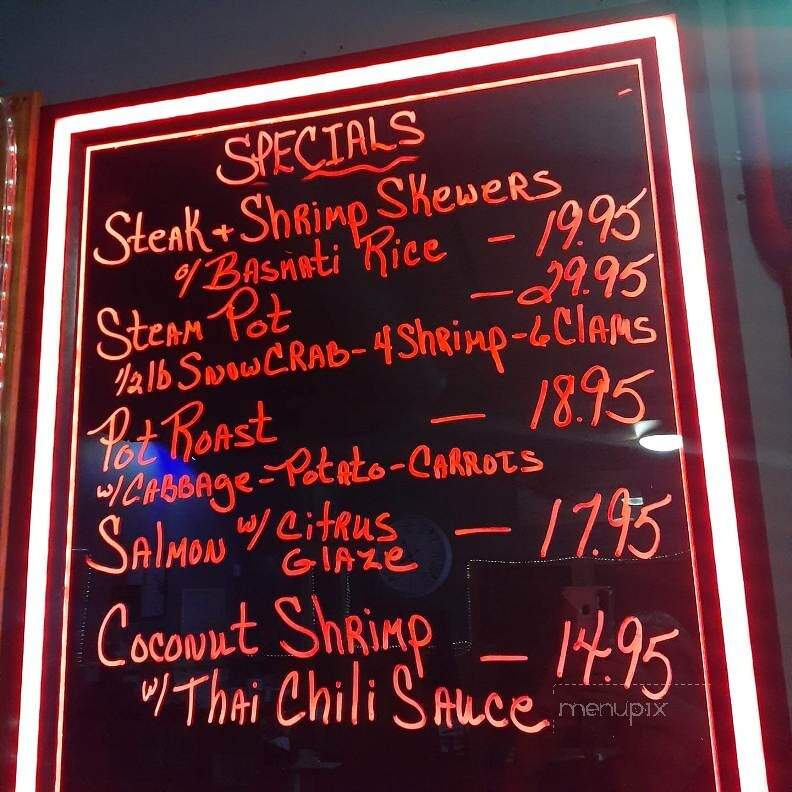 SPECIALS
Steak + Shrimp Skewers
o/ Basmati Rice - 19.95
Steam Pot - 29.95
1/2 lb Snow Crab - 4 Shrimp - 6 Clams
Pot Roast - 18.95
w/ Cabbage - Potato - Carrots
Salmon w/ Citrus Glaze - 17.95
Coconut Shrimp - 14.95
w/ Thai Chili Sauce
menupix